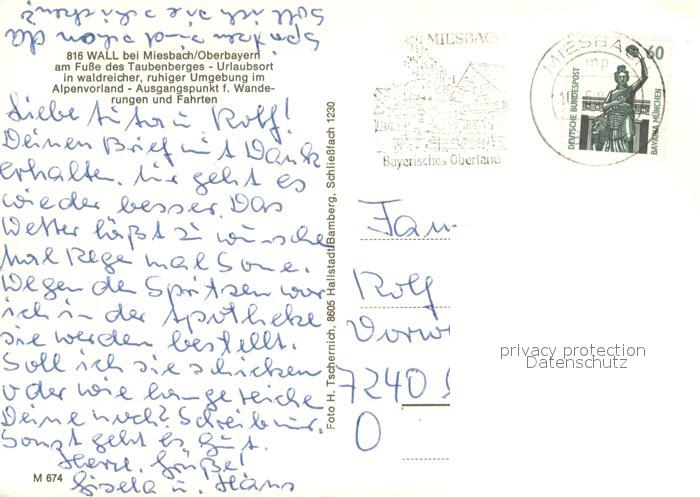 816 WALL bei Miesbach/Oberbayern
am Fuße des Taubenberges - Urlaubsort
in waldreicher, ruhiger Umgebung im
Alpenvorland - Ausgangspunkt f. Wande-
rungen und Fahrten
Liebe Uta u. Rolf!
Deinen Brief mit Dank
erhalten. Mir geht es
wieder besser. Das
Wetter läßt z. wünsche
mal Rege mal Sone.
Wegen den Spritzen war
ich in der Apotheke
sie werden bestellt.
Soll ich sie schicken
oder wie lange reiche
Deine noch? Schreib mir.
Sonst geht es gut.
Herzl. Grüße!
Gisela u. Hans
Spritzen sind schon da
soll ich sie schicken?
M 674
Foto H. Tschernich, 8605 Hallstadt/Bamberg, Schließfach 1230
MIESBACH
Bayerisches Oberland
MIESBAC
mp
60
DEUTSCHE BUNDESPOST
BAVARIA MÜNCHEN
Fam.
Rolf
Vorw
7240
O
privacy protection
Datenschutz